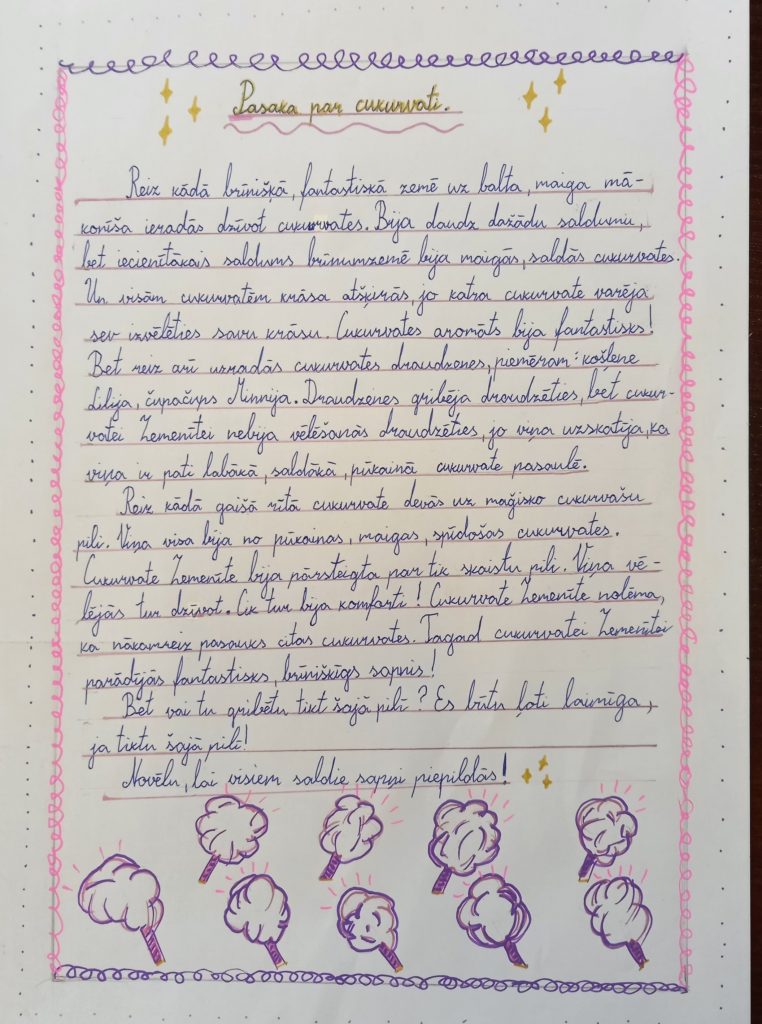 Pasaka par cukurvati.
Reiz kādā brīnišķā, fantastiskā zemē uz balta, maiga mā-
konīša ieradās dzīvot cukurvates. Bija daudz dažādu saldumu,
bet iecienītākais saldums brīnumzemē bija maigās, saldās cukurvates.
Un visām cukurvatēm krāsa atšķirās, jo katra cukurvate varēja
sev izvēlēties savu krāsu. Cukurvates aromāts bija fantastisks!
Bet reiz arī uzradās cukurvates draudzenes, piemēram: košļene
Lilija, čupačups Minnija. Draudzenes gribēja draudzēties, bet cukur-
vatei Zemenītei nebija vēlēšanās draudzēties, jo viņa uzskatīja, ka
viņa ir pati labākā, saldākā, pūkainā cukurvate pasaulē.
Reiz kādā gaišā rītā cukurvate devās uz maģisko cukurvašu
pili. Viņa visa bija no pūkainas, maigas, spīdošas cukurvates.
Cukurvate Zemenīte bija pārsteigta par tik skaistu pili. Viņa vē-
lējās tur dzīvot. Cik tur bija komforti! Cukurvate Zemenīte nolēma,
ka nākamreiz pasauks citas cukurvates. Tagad cukurvatei Zemenītei
parādījās fantastisks, brīnišķīgs sapnis!
Bet vai tu gribētu tikt šajā pilī? Es būtu ļoti laimīga,
ja tiktu šajā pilī!
Novēlu, lai visiem saldie sapņi piepildās!